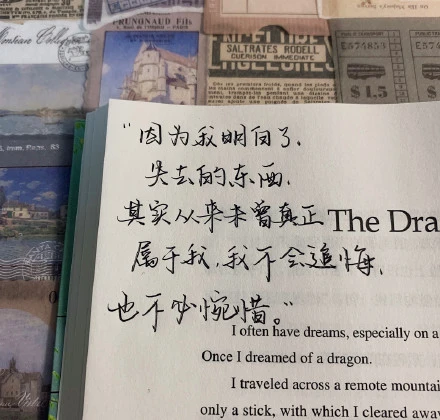 PRUNGNAUD Fils
SALTRATES RODELL
GUÉRISON IMMÉDIATE
E574853
$1.5
"因为我明白了,
失去的东西,
其实从来未曾真正
The Dra
属于我,我不会追悔,
也不必惋惜。"
I often have dreams, especially on a
Once I dreamed of a dragon.
I traveled across a remote mountai
only a stick, with which I cleared away